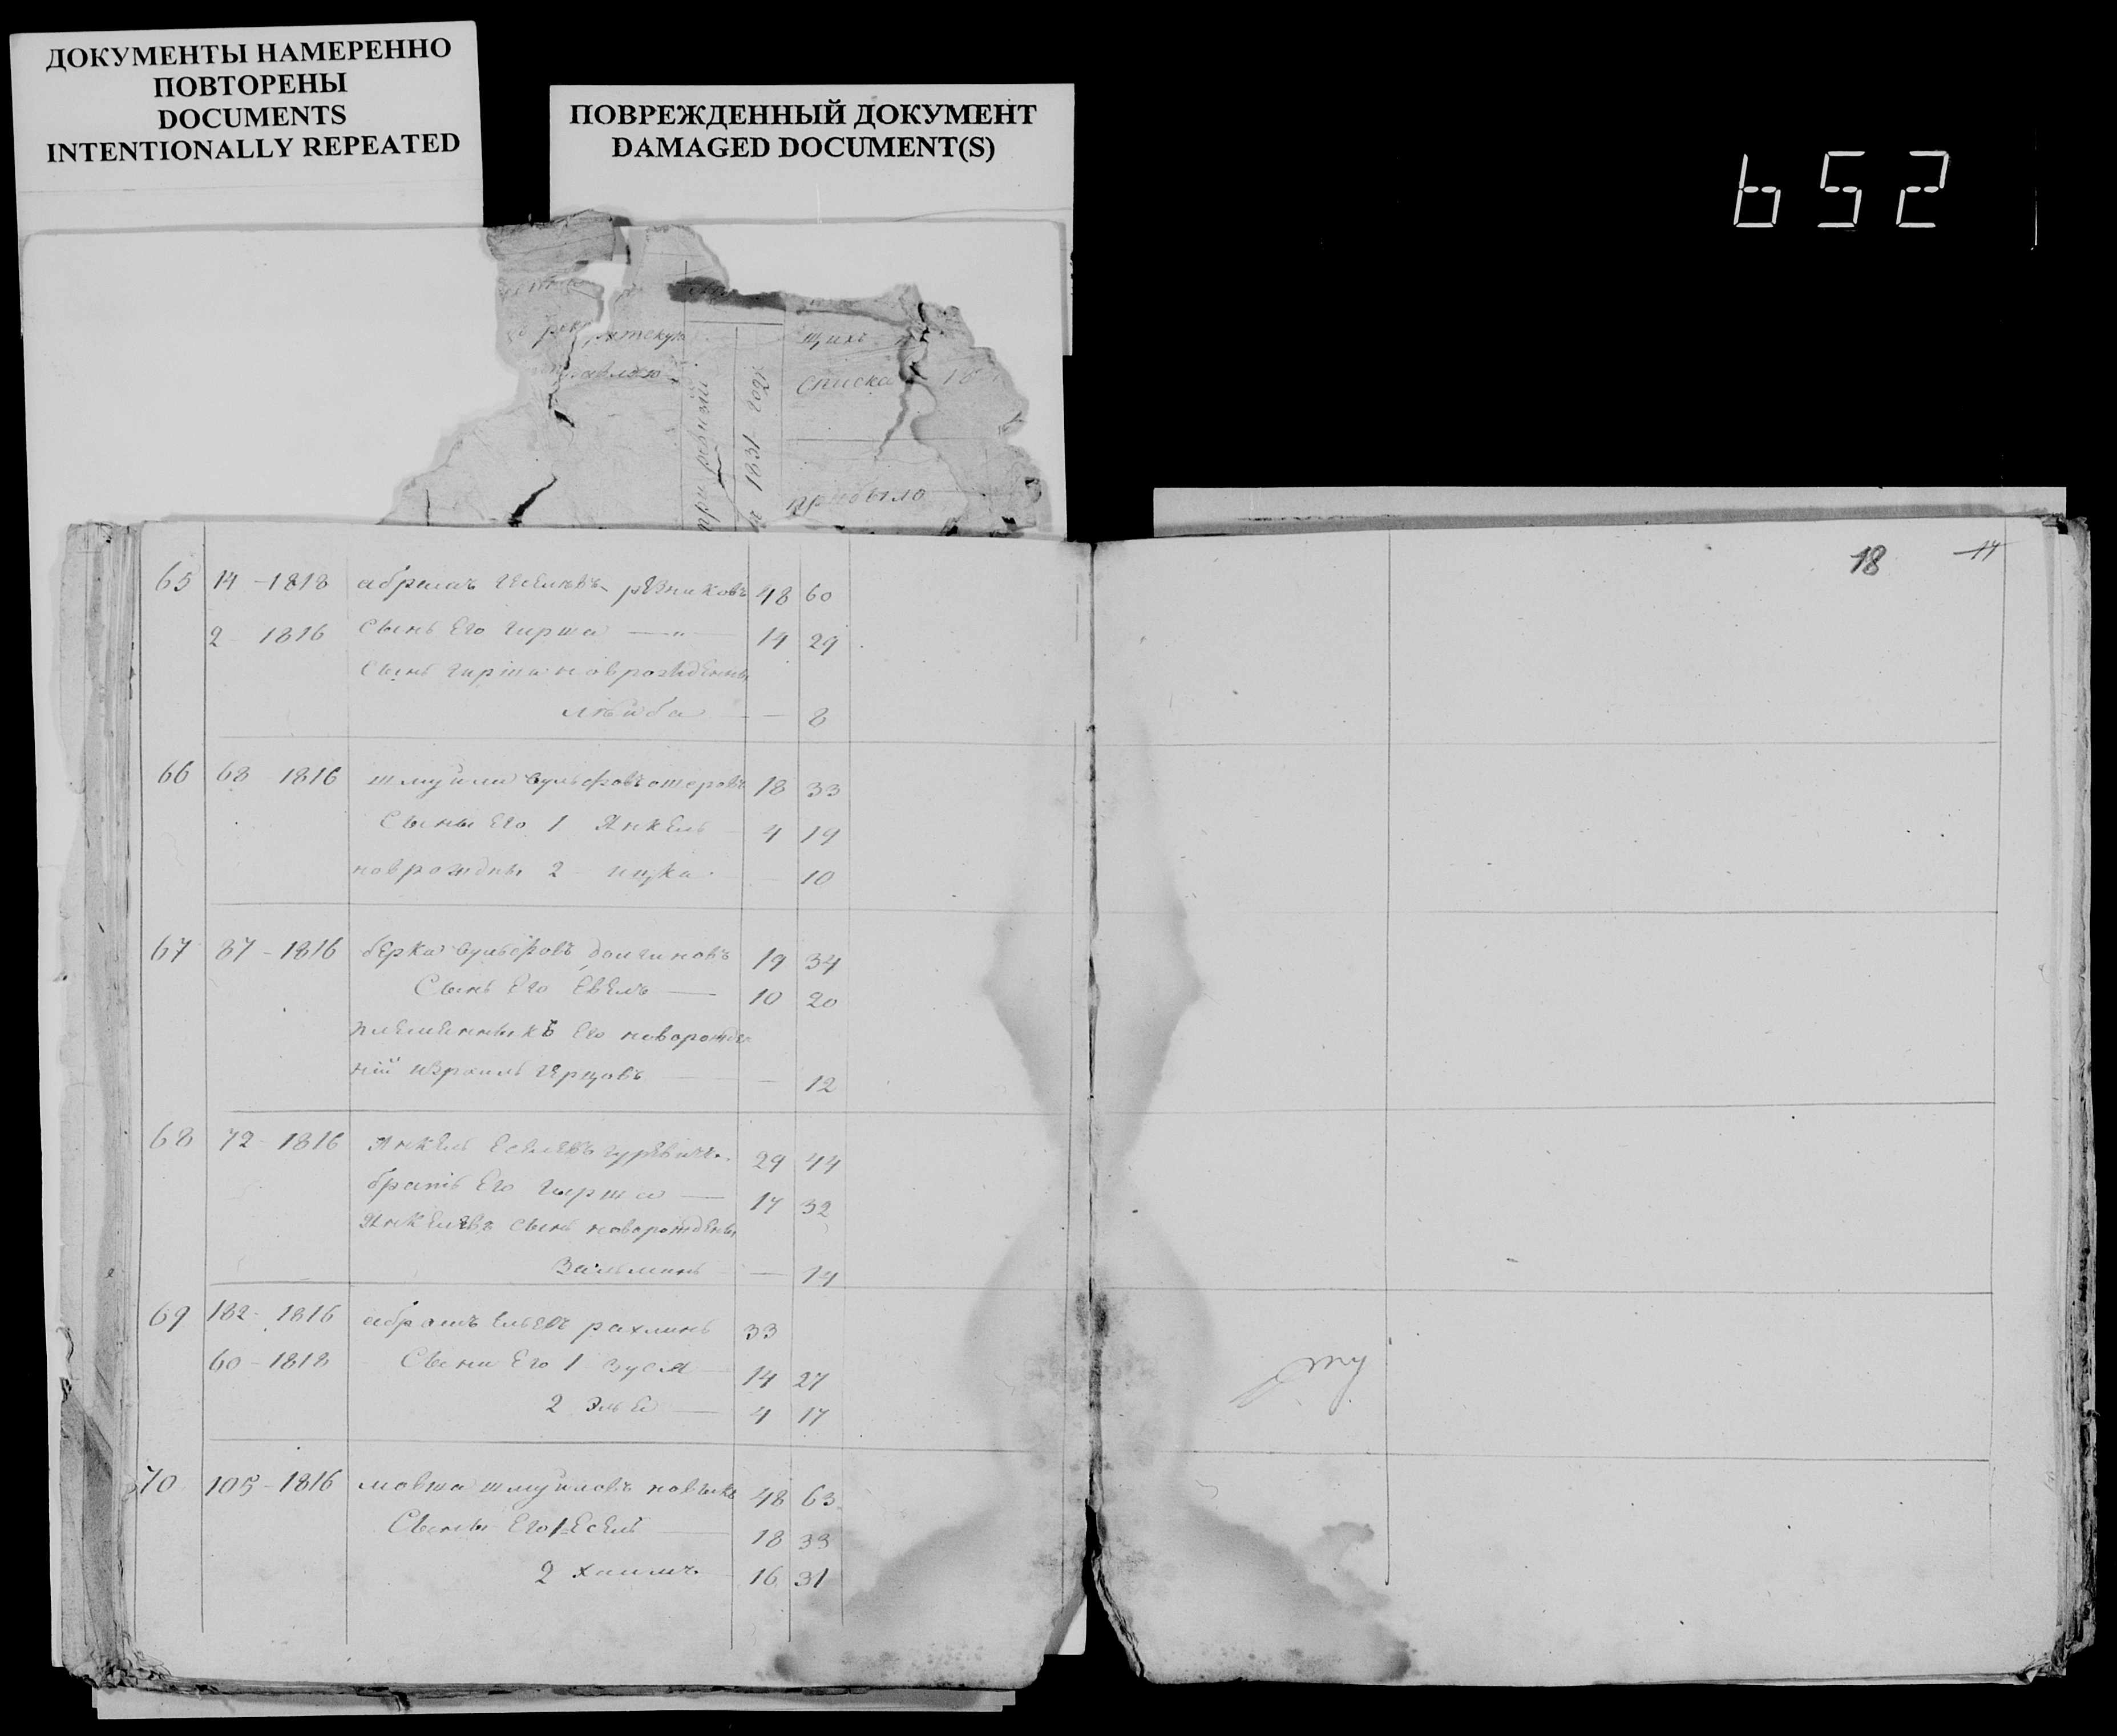 ДОКУМЕНТЫ НАМЕРЕННО
ПОВТОРЕНЫ
DOCUMENTS
INTENTIONALLY REPEATED
ПОВРЕЖДЕННЫЙ ДОКУМЕНТ
DAMAGED DOCUMENT(S)
652
списка
при ревизии
1831 года
прибыло
18 17
65 14 - 1818 абрамъ резниковъ 48 60
2 - 1816 сынъ Его гирша — " — 14 29
сынъ гирша новрожденны
лейба — — 8
66 68 - 1816 шмуйли вульфовъ 18 33
Сыны Его 1 Янкель 4 19
новрождны 2 - ицка — 10
67 87 - 1816 берка вульфовъ долгиновъ 19 34
Сынъ Его Евель — 10 20
племенныкъ Его наворожде
ний израиль герцовъ — — 12
68 72 - 1816 Янкель Еселевъ гуревичъ 29 44
братъ Его гирша — 17 32
Янкелевъ сынъ наворожденны
Зальманъ — 14
69 182 - 1816 абрамъ рахлинъ 33
60 - 1818 Сыни Его 1 зуся 14 27
2 Элья — 4 17
70 105 - 1816 мовша шмуйловъ 48 63
Сыны Его 1 Есель 18 33
2 хаимъ 16 31